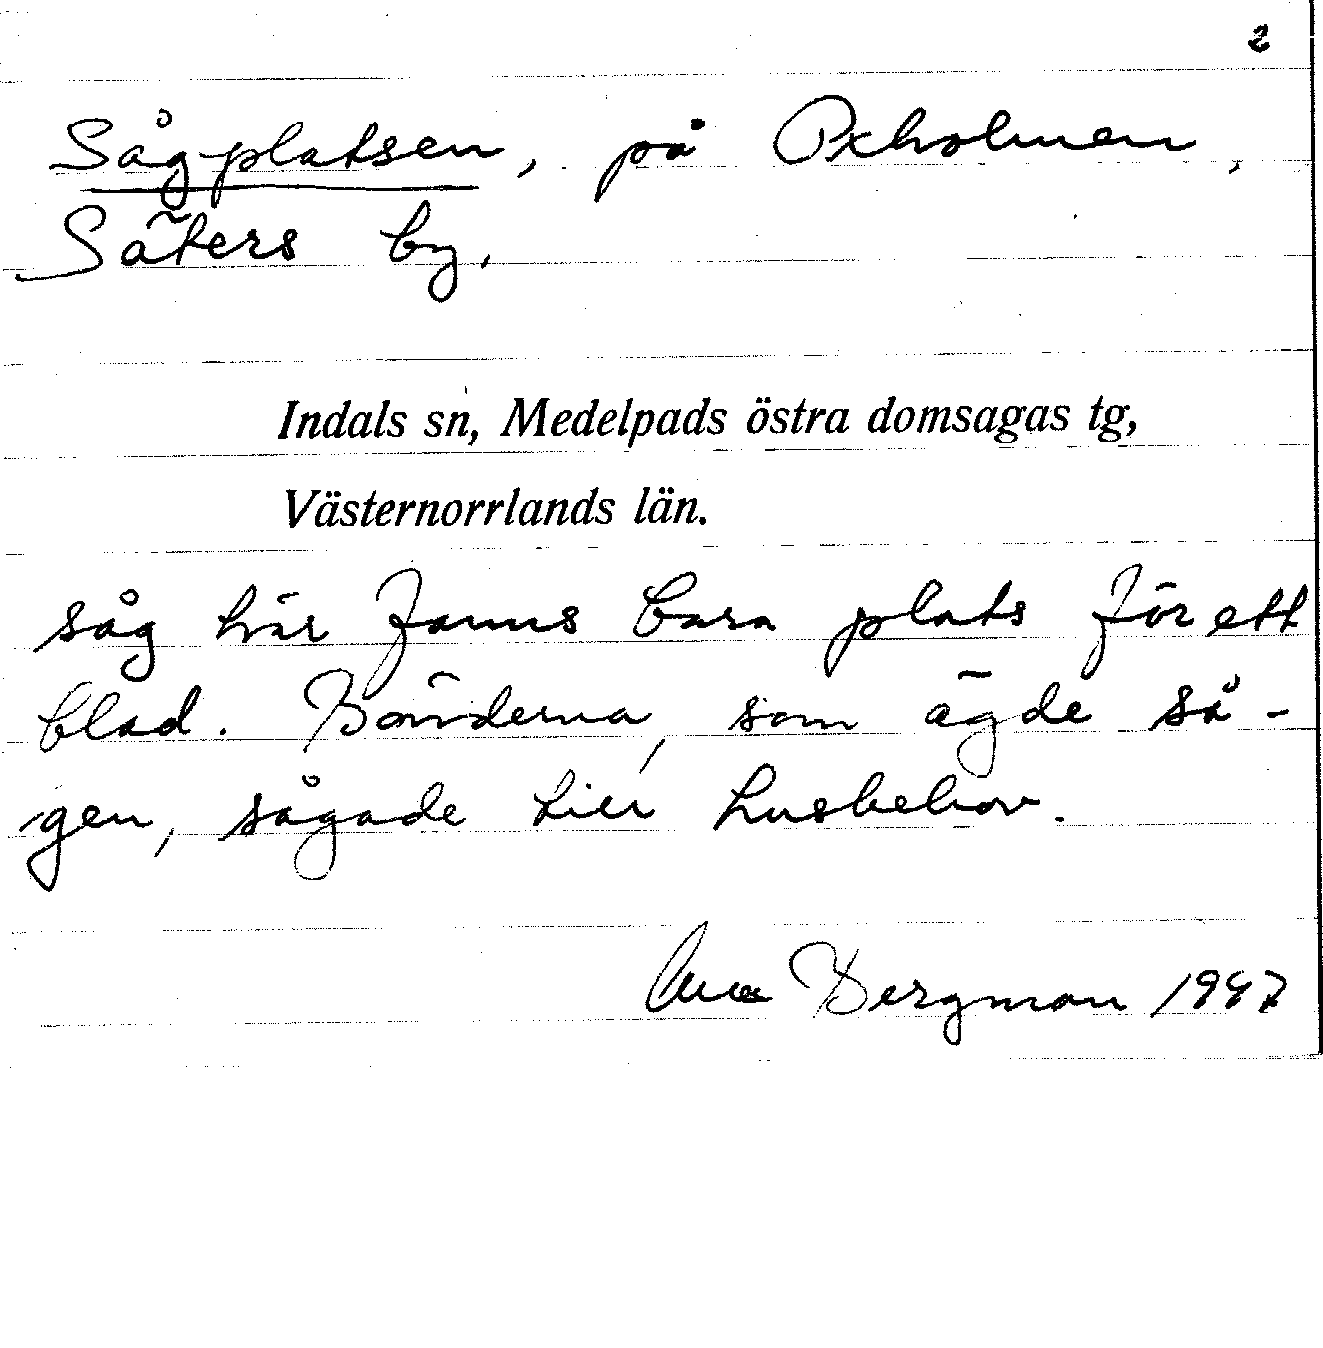 2
Sågplatsen, på Oxholmen,
Säters by,
Indals sn, Medelpads östra domsagas tg,
Västernorrlands län.
såg här fanns bara plats för ett
blad. Bönderna, som ägde så-
gen, sågade till husbehov.
Bergman 1947